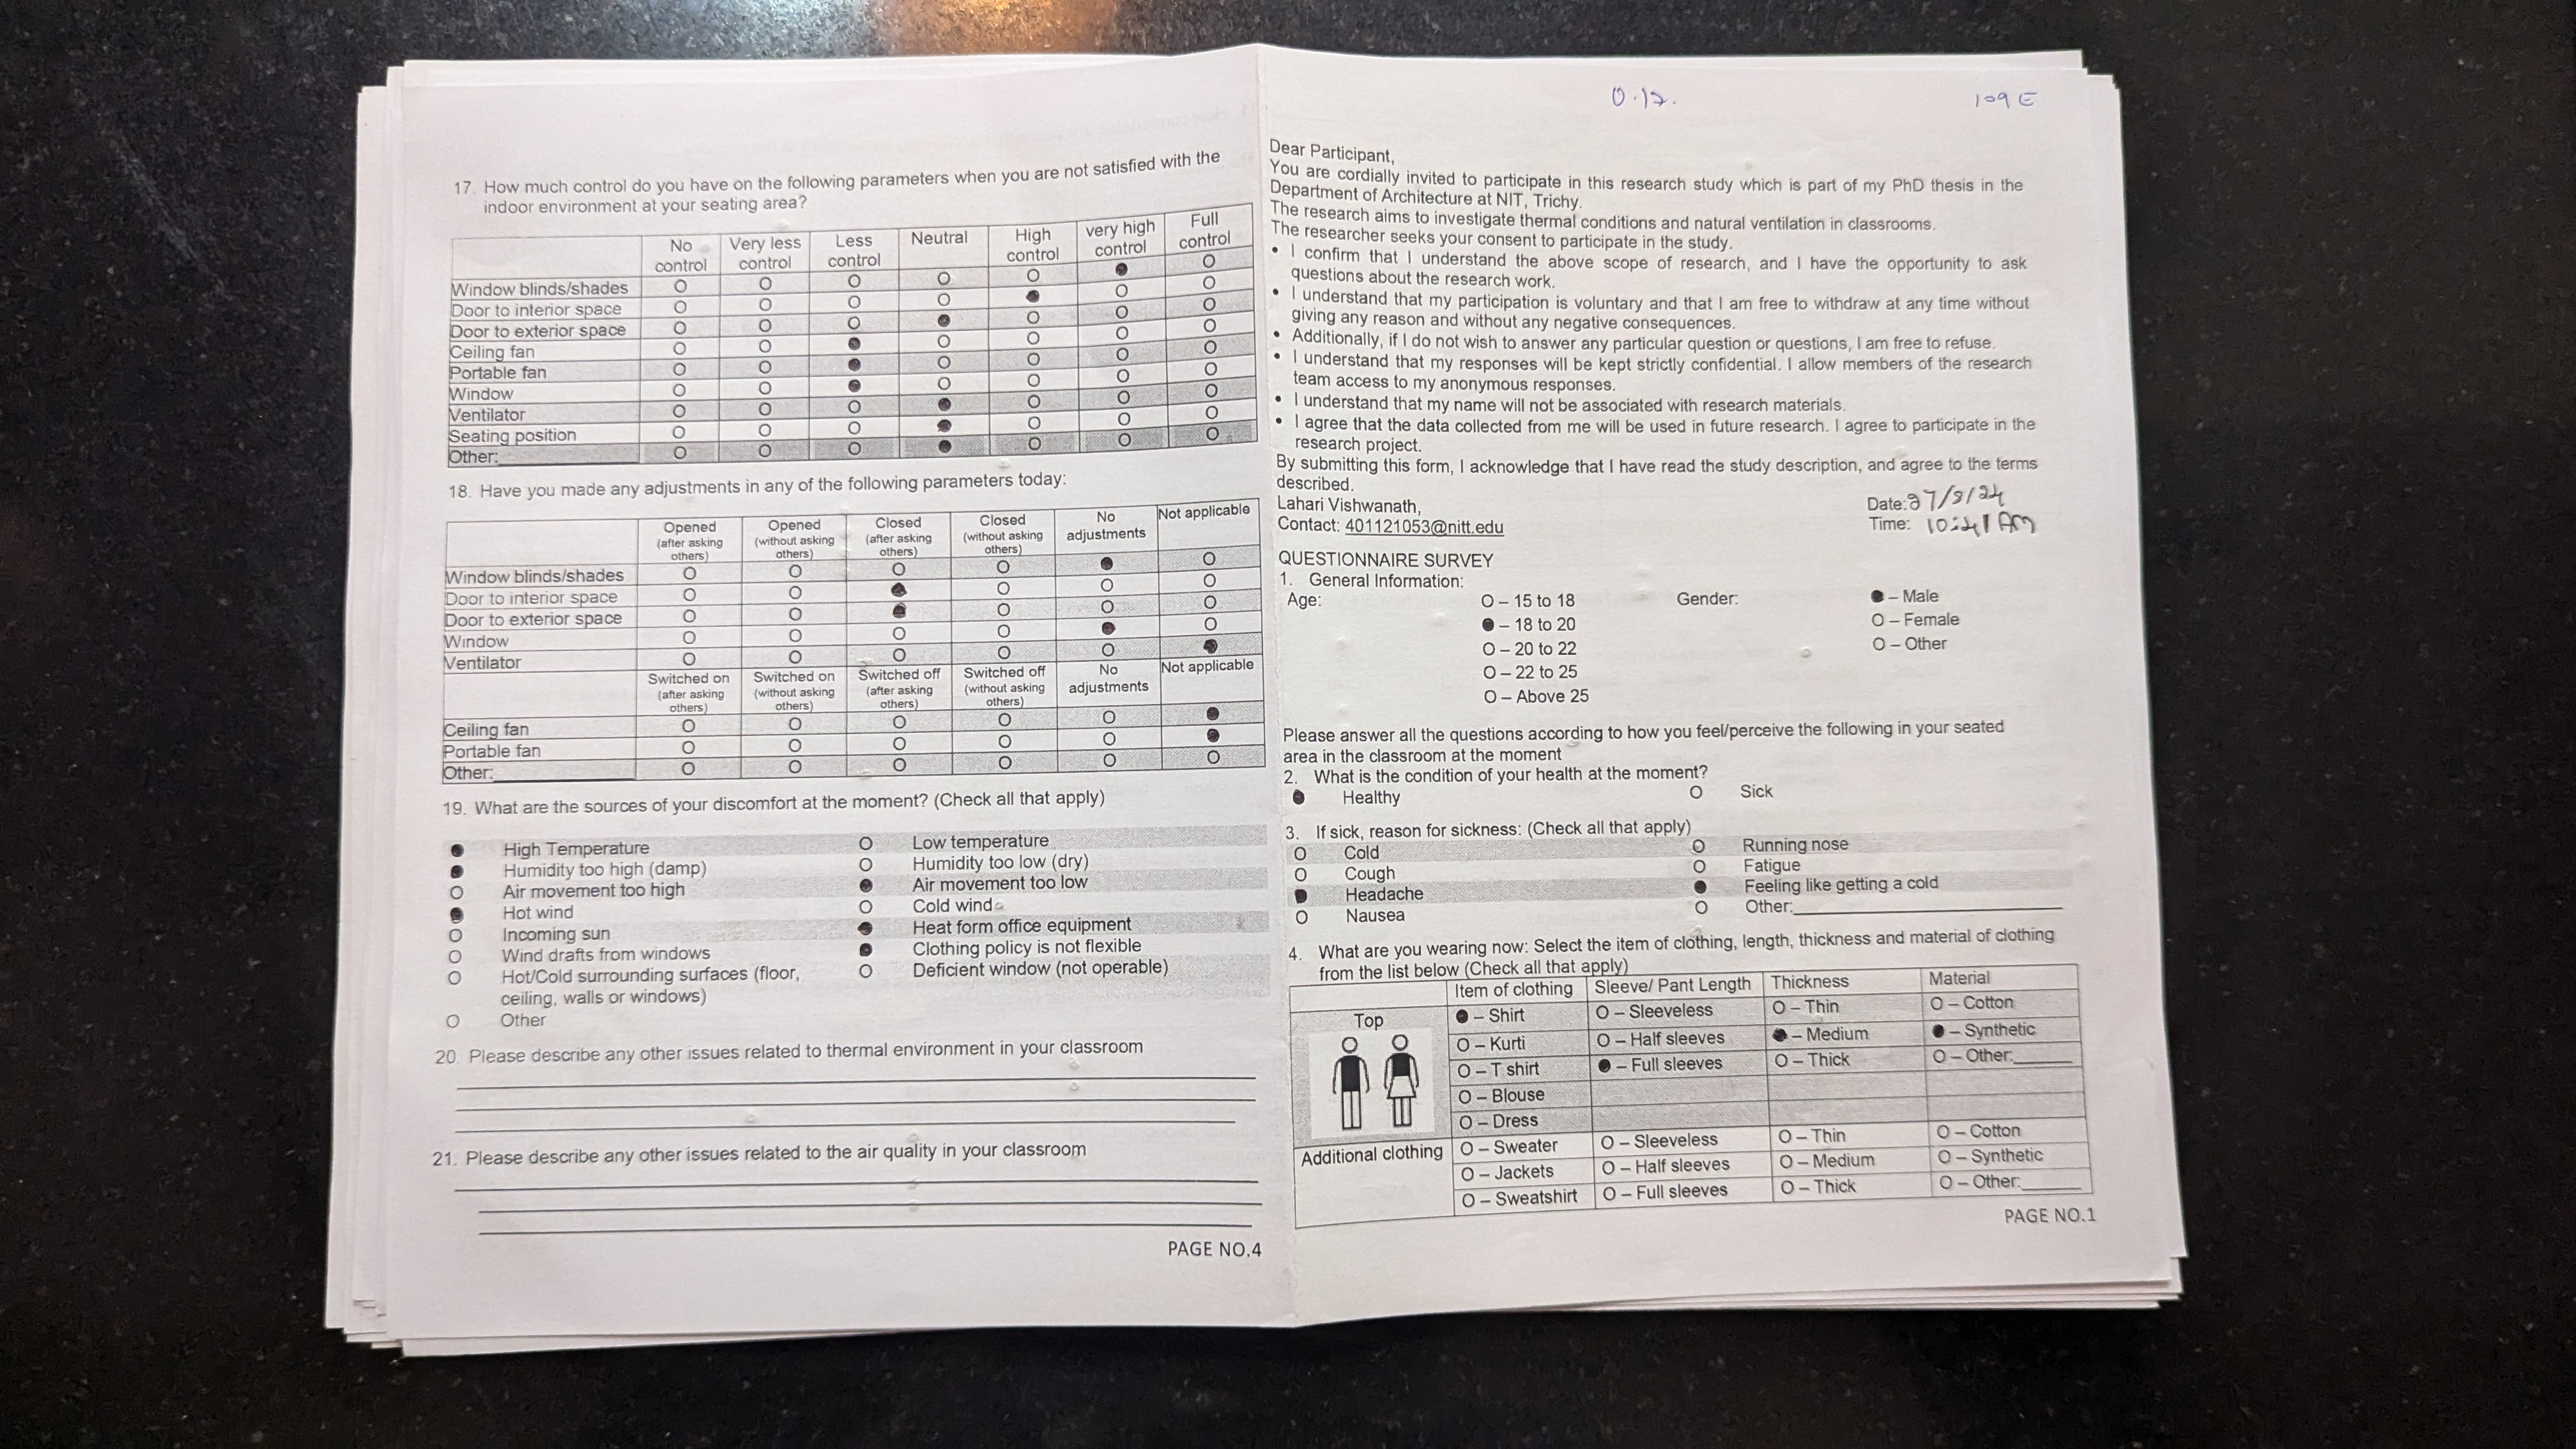 17. How much control do you have on the following parameters when you are not satisfied with the
indoor environment at your seating area?
No control Very less control Less control Neutral High control very high control Full control
Window blinds/shades O O O O O ● O
Door to interior space O O O O ● O O
Door to exterior space O O O ● O O O
Ceiling fan O O ● O O O O
Portable fan O O ● O O O O
Window O O ● O O O O
Ventilator O O O ● O O O
Seating position O O O ● O O O
Other:________ O O O ● O O O
18. Have you made any adjustments in any of the following parameters today:
Opened (after asking others) Opened (without asking others) Closed (after asking others) Closed (without asking others) No adjustments Not applicable
Window blinds/shades O O O O ● O
Door to interior space O O ● O O O
Door to exterior space O O ● O O O
Window O O O O ● O
Ventilator O O O O O ●
Switched on (after asking others) Switched on (without asking others) Switched off (after asking others) Switched off (without asking others) No adjustments Not applicable
Ceiling fan O O O O O ●
Portable fan O O O O O ●
Other:________ O O O O O O
19. What are the sources of your discomfort at the moment? (Check all that apply)
● High Temperature O Low temperature
● Humidity too high (damp) O Humidity too low (dry)
O Air movement too high ● Air movement too low
● Hot wind O Cold wind
O Incoming sun ● Heat form office equipment
O Wind drafts from windows ● Clothing policy is not flexible
O Hot/Cold surrounding surfaces (floor, O Deficient window (not operable)
ceiling, walls or windows)
O Other
20. Please describe any other issues related to thermal environment in your classroom
21. Please describe any other issues related to the air quality in your classroom
PAGE NO.4
0.17. 109 E
Dear Participant,
You are cordially invited to participate in this research study which is part of my PhD thesis in the
Department of Architecture at NIT, Trichy.
The research aims to investigate thermal conditions and natural ventilation in classrooms.
The researcher seeks your consent to participate in the study.
• I confirm that I understand the above scope of research, and I have the opportunity to ask
questions about the research work.
• I understand that my participation is voluntary and that I am free to withdraw at any time without
giving any reason and without any negative consequences.
• Additionally, if I do not wish to answer any particular question or questions, I am free to refuse.
• I understand that my responses will be kept strictly confidential. I allow members of the research
team access to my anonymous responses.
• I understand that my name will not be associated with research materials.
• I agree that the data collected from me will be used in future research. I agree to participate in the
research project.
By submitting this form, I acknowledge that I have read the study description, and agree to the terms
described.
Lahari Vishwanath, Date:27/8/24
Contact: 401121053@nitt.edu Time: 10:41 AM
QUESTIONNAIRE SURVEY
1. General Information:
Age: O – 15 to 18 Gender: ● – Male
● – 18 to 20 O – Female
O – 20 to 22 O – Other
O – 22 to 25
O – Above 25
Please answer all the questions according to how you feel/perceive the following in your seated
area in the classroom at the moment
2. What is the condition of your health at the moment?
● Healthy O Sick
3. If sick, reason for sickness: (Check all that apply)
O Cold O Running nose
O Cough O Fatigue
● Headache ● Feeling like getting a cold
O Nausea O Other:________
4. What are you wearing now: Select the item of clothing, length, thickness and material of clothing
from the list below (Check all that apply)
Item of clothing Sleeve/ Pant Length Thickness Material
Top ● – Shirt O – Sleeveless O – Thin O – Cotton
O – Kurti O – Half sleeves ● – Medium ● – Synthetic
O – T shirt ● – Full sleeves O – Thick O – Other:______
O – Blouse
O – Dress
Additional clothing O – Sweater O – Sleeveless O – Thin O – Cotton
O – Jackets O – Half sleeves O – Medium O – Synthetic
O – Sweatshirt O – Full sleeves O – Thick O – Other:______
PAGE NO.1